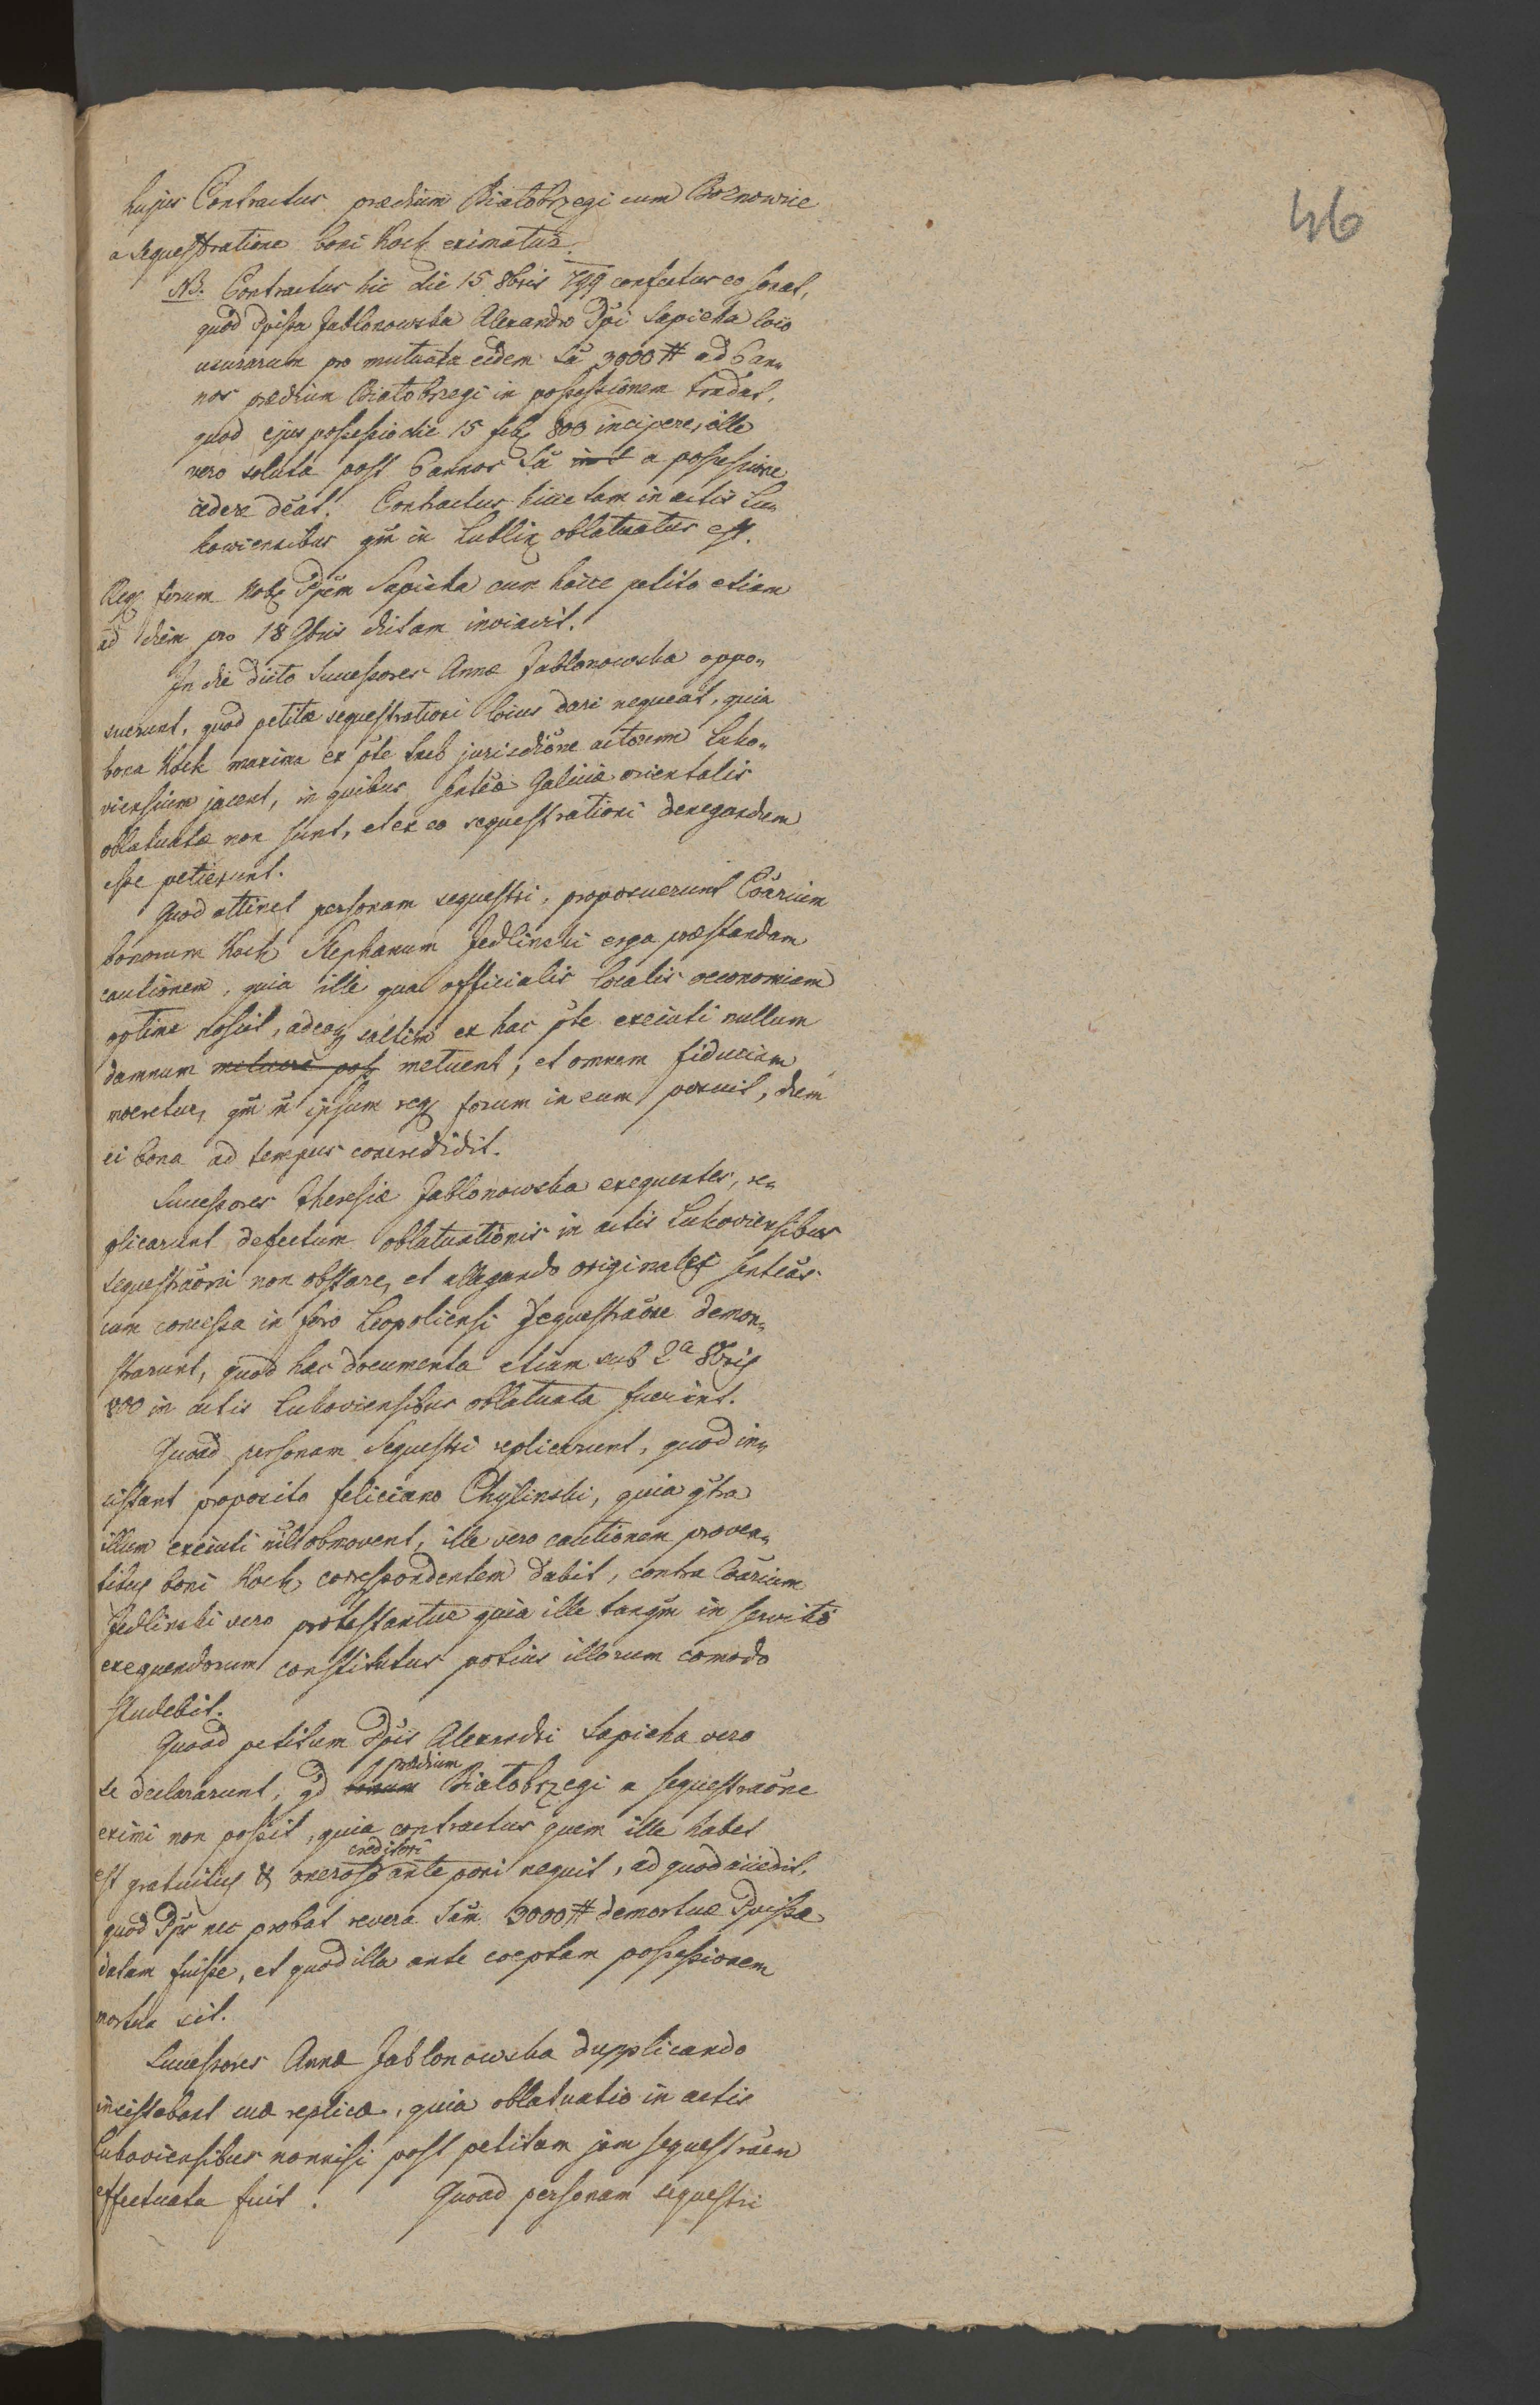 46
hujus Contractus prædium Białobrzegi cum Borznowice
a sequestratione boni Kock eximatur.
NB. Contractus hic die 15 8bris 799 confectus eo sonat,
quod Ppissa Jablonowska Alexandro Ppi Sapieha loco
usurarum pro mutuata eidem Sa 3000 # ad 6 an„
nos prædium Białobrzegi in possessionem tradat,
quod ejus possessio die 15 feb 800 incipere, ille
vero soluta post 6 annos Sa a possessione
cedere deat. Contractus hicce tam in actis Lu„
kowiensibus qm in Lublin oblatuatus est.
Reg forum Nob Ppem Sapieha cum hocce petito etiam
ad diem pro 18 9bris dictam inviavit.
In die dicto Successores Annæ Jablonowska oppo„
suerunt, quod petitæ sequestrationi locus dari nequeat, quia
bona Kock maxima ex pte sub jurisdictione actorum Luko„
viensium jacent, in quibus sentæ Galiciæ orientalis
oblatuatæ non sunt, et ex eo sequestrationi denegandum
esse petierunt.
Quod attinet personam sequestri, proposuerunt Coarium
bonorum Kock Stephanum Jedlinski erga præstandam
cautionem, quia ille qua officialis localis oeconomiam
optime noscit, adeoq saltim ex hac pte execiuti nullum
damnum metuere pot metuent, et omnem fiduciam
meretur, qm et ipsum reg forum in eum posuit, dum
ei bona ad tempus concredidit.
Successores Theresiæ Jablonowska exequentes, re„
plicarunt defectum oblatuationis in actis Lukoviensibus
sequestraoni non obstare, et allegando originales senteas
cum concessa in foro Leopoliensi sequestraone demon„
strarunt, quod hæc documenta etiam sub 2a 8bris
800 in actis Lukoviensibus oblatuata fuerint.
Quoad personam Sequestri replicarunt, quod in„
sistant proposito Feliciano Chylinski, quia ctra
illum execiuti nil obmovent, ille vero cautionem proven„
tibus boni Kock correspondentem dabit, contra Coarium
Jedlinski vero protestantur quia ille tanqm in servitio
exequendorum constitutus potius illorum comodo
studebit.
Quoad petitum Ppis Alexandri Sapieha vero
se declararunt, qd bonum prædium Białobrzegi a sequestraone
eximi non possit, quia contractus quem ille habet
est gratuitus & oneroso creditori anteponi nequit, ad quod accedit,
quod Pps nec probat revera Sam 3000 # demortuæ Ppissæ
datam fuisse, et quod illa ante coeptam possessionem
mortua sit.
Successores Annæ Jablonowska dupplicando
insistebant suæ replicæ, quia oblatuatio in actis
Lukoviensibus nonnisi post petitam jam sequestraem
effectuata fuit. Quoad personam sequestri